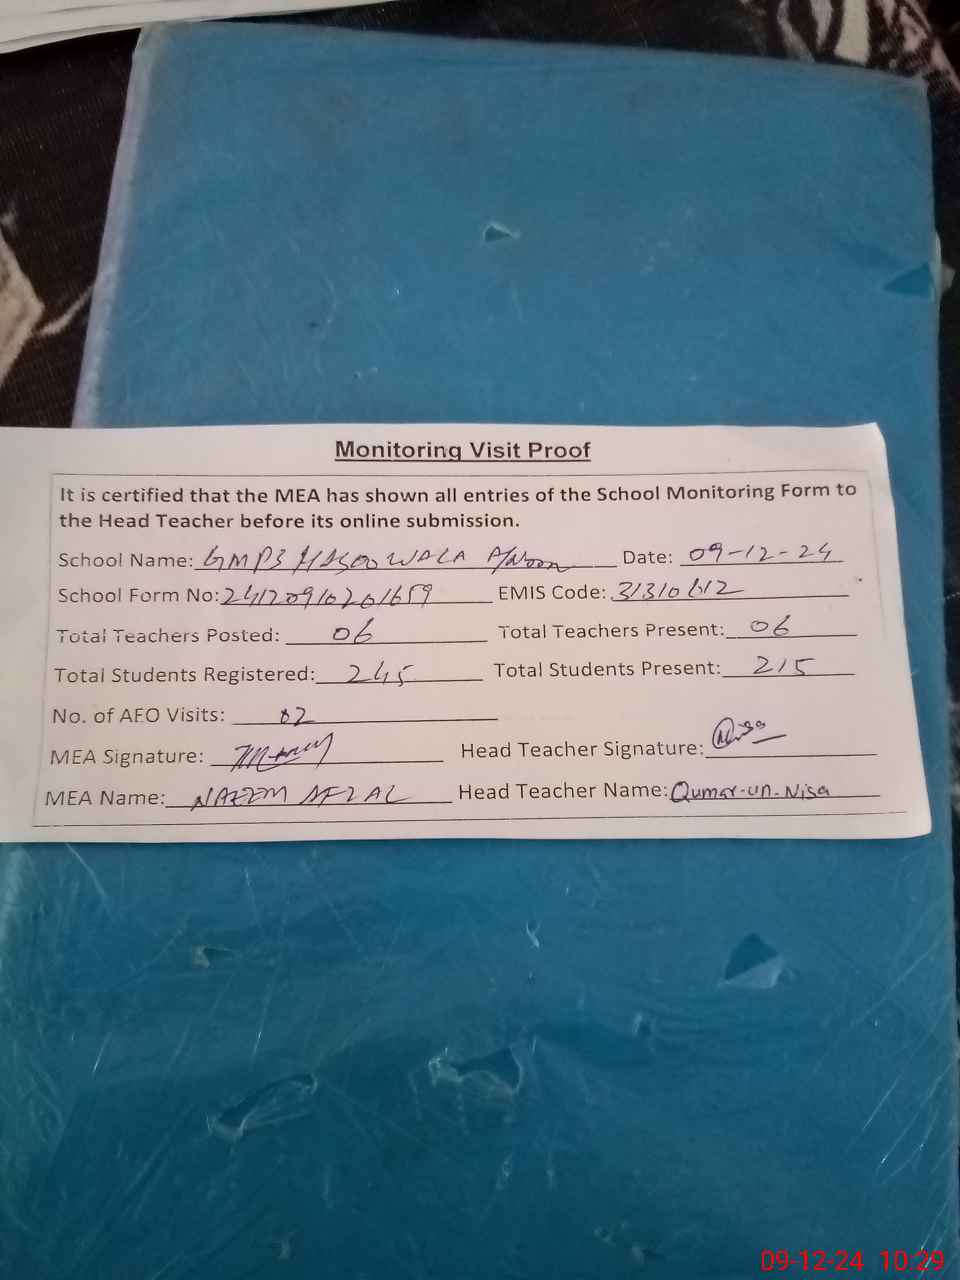 Monitoring Visit Proof
It is certified that the MEA has shown all entries of the School Monitoring Form to
the Head Teacher before its online submission.
School Name: GMPS HASOO WALA A/Noon Date: 09-12-24
School Form No: 24120910201659 EMIS Code: 31310612
Total Teachers Posted: 06 Total Teachers Present: 06
Total Students Registered: 245 Total Students Present: 215
No. of AEO Visits: 02
MEA Signature: Head Teacher Signature: Nisa
MEA Name: NAEEM AFZAL Head Teacher Name: Qumar-un-Nisa
09-12-24 10:29